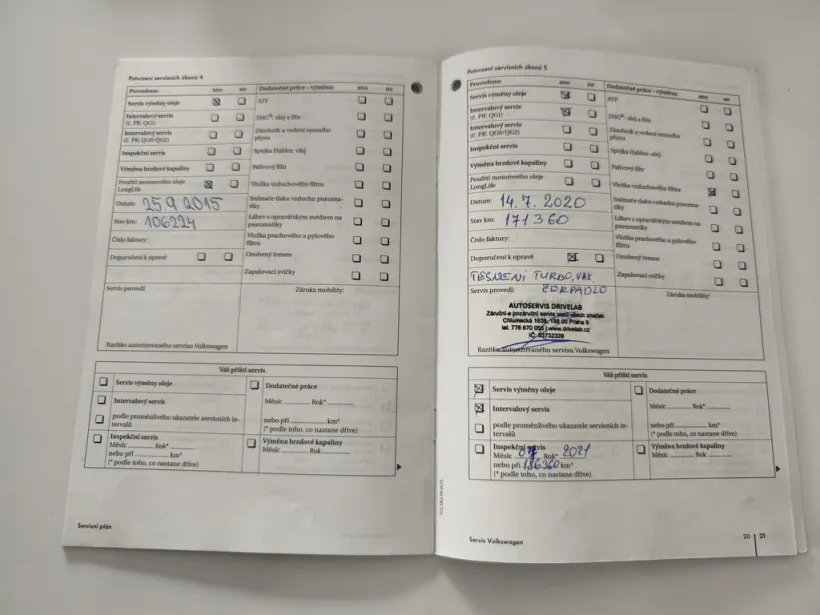 Potvrzení servisních úkonů 4
Provedeno: ano ne
Servis výměny oleje
Intervalový servis
(č. PR: QG1)
Intervalový servis
(č. PR: QG0/QG2)
Inspekční servis
Výměna brzdové kapaliny
Použití motorového oleje
LongLife
Datum: 25.9.2015
Stav km: 106224
Číslo faktury:
Doporučení k opravě
Servis provedl:
Razítko autorizovaného servisu Volkswagen
Dodatečné práce – výměně: ano ne
ATF
DSG®: olej a filtr
Zánožník a vedení ozubeného
Spojka Haldex: olej
Palivový filtr
Vložka vzduchového filtru
Snímače tlaku vzduchu pneuma-
tiky
Láhev s opravářským médiem na
pneumatiky
Vložka prachového a pylového
filtru
Ozubený řemen
Zapalovací svíčky
Záruka mobility:
Váš příští servis
Servis výměny oleje
Intervalový servis
podle proměnlivého ukazatele servisních in-
tervalů
Inspekční servis
Měsíc ............ Rok* ............
nebo při ............ km*
(* podle toho, co nastane dříve)
Dodatečné práce
Měsíc ............ Rok* ............
nebo při ............ km*
(* podle toho, co nastane dříve)
Výměna brzdové kapaliny
Měsíc ............ Rok ............
Servisní plán
Potvrzení servisních úkonů 5
Provedeno: ano ne
Servis výměny oleje
Intervalový servis
(č. PR: QG1)
Intervalový servis
(č. PR: QG0/QG2)
Inspekční servis
Výměna brzdové kapaliny
Použití motorového oleje
LongLife
Datum: 14.7.2020
Stav km: 171360
Číslo faktury:
Doporučení k opravě
TĚSNENÍ TURDO, VAK
ČDRPADLO
Servis provedl:
AUTOSERVIS DRIVELAB
Záruční a pozáruční servis vozů všech značek
Chlumecká 1539, 198 00 Praha 9
tel. 776 670 055 | www.drivelab.cz
IČ: 03732339
Razítko autorizovaného servisu Volkswagen
Dodatečné práce – výměně: ano ne
ATF
DSG®: olej a filtr
Spojka Haldex: olej
Palivový filtr
Vložka vzduchového filtru
Snímače tlaku vzduchu pneuma-
tiky
Láhev s opravářským médiem na
pneumatiky
Vložka prachového a pylového
filtru
Ozubený řemen
Zapalovací svíčky
Záruka mobility:
Váš příští servis
Servis výměny oleje
Intervalový servis
podle proměnlivého ukazatele servisních in-
tervalů
Inspekční servis
Měsíc 07 Rok* 2021
nebo při 186360 km*
(* podle toho, co nastane dříve)
Dodatečné práce
Měsíc ............ Rok* ............
nebo při ............ km*
(* podle toho, co nastane dříve)
Výměna brzdové kapaliny
Měsíc ............ Rok ............
Servis Volkswagen
20 | 21